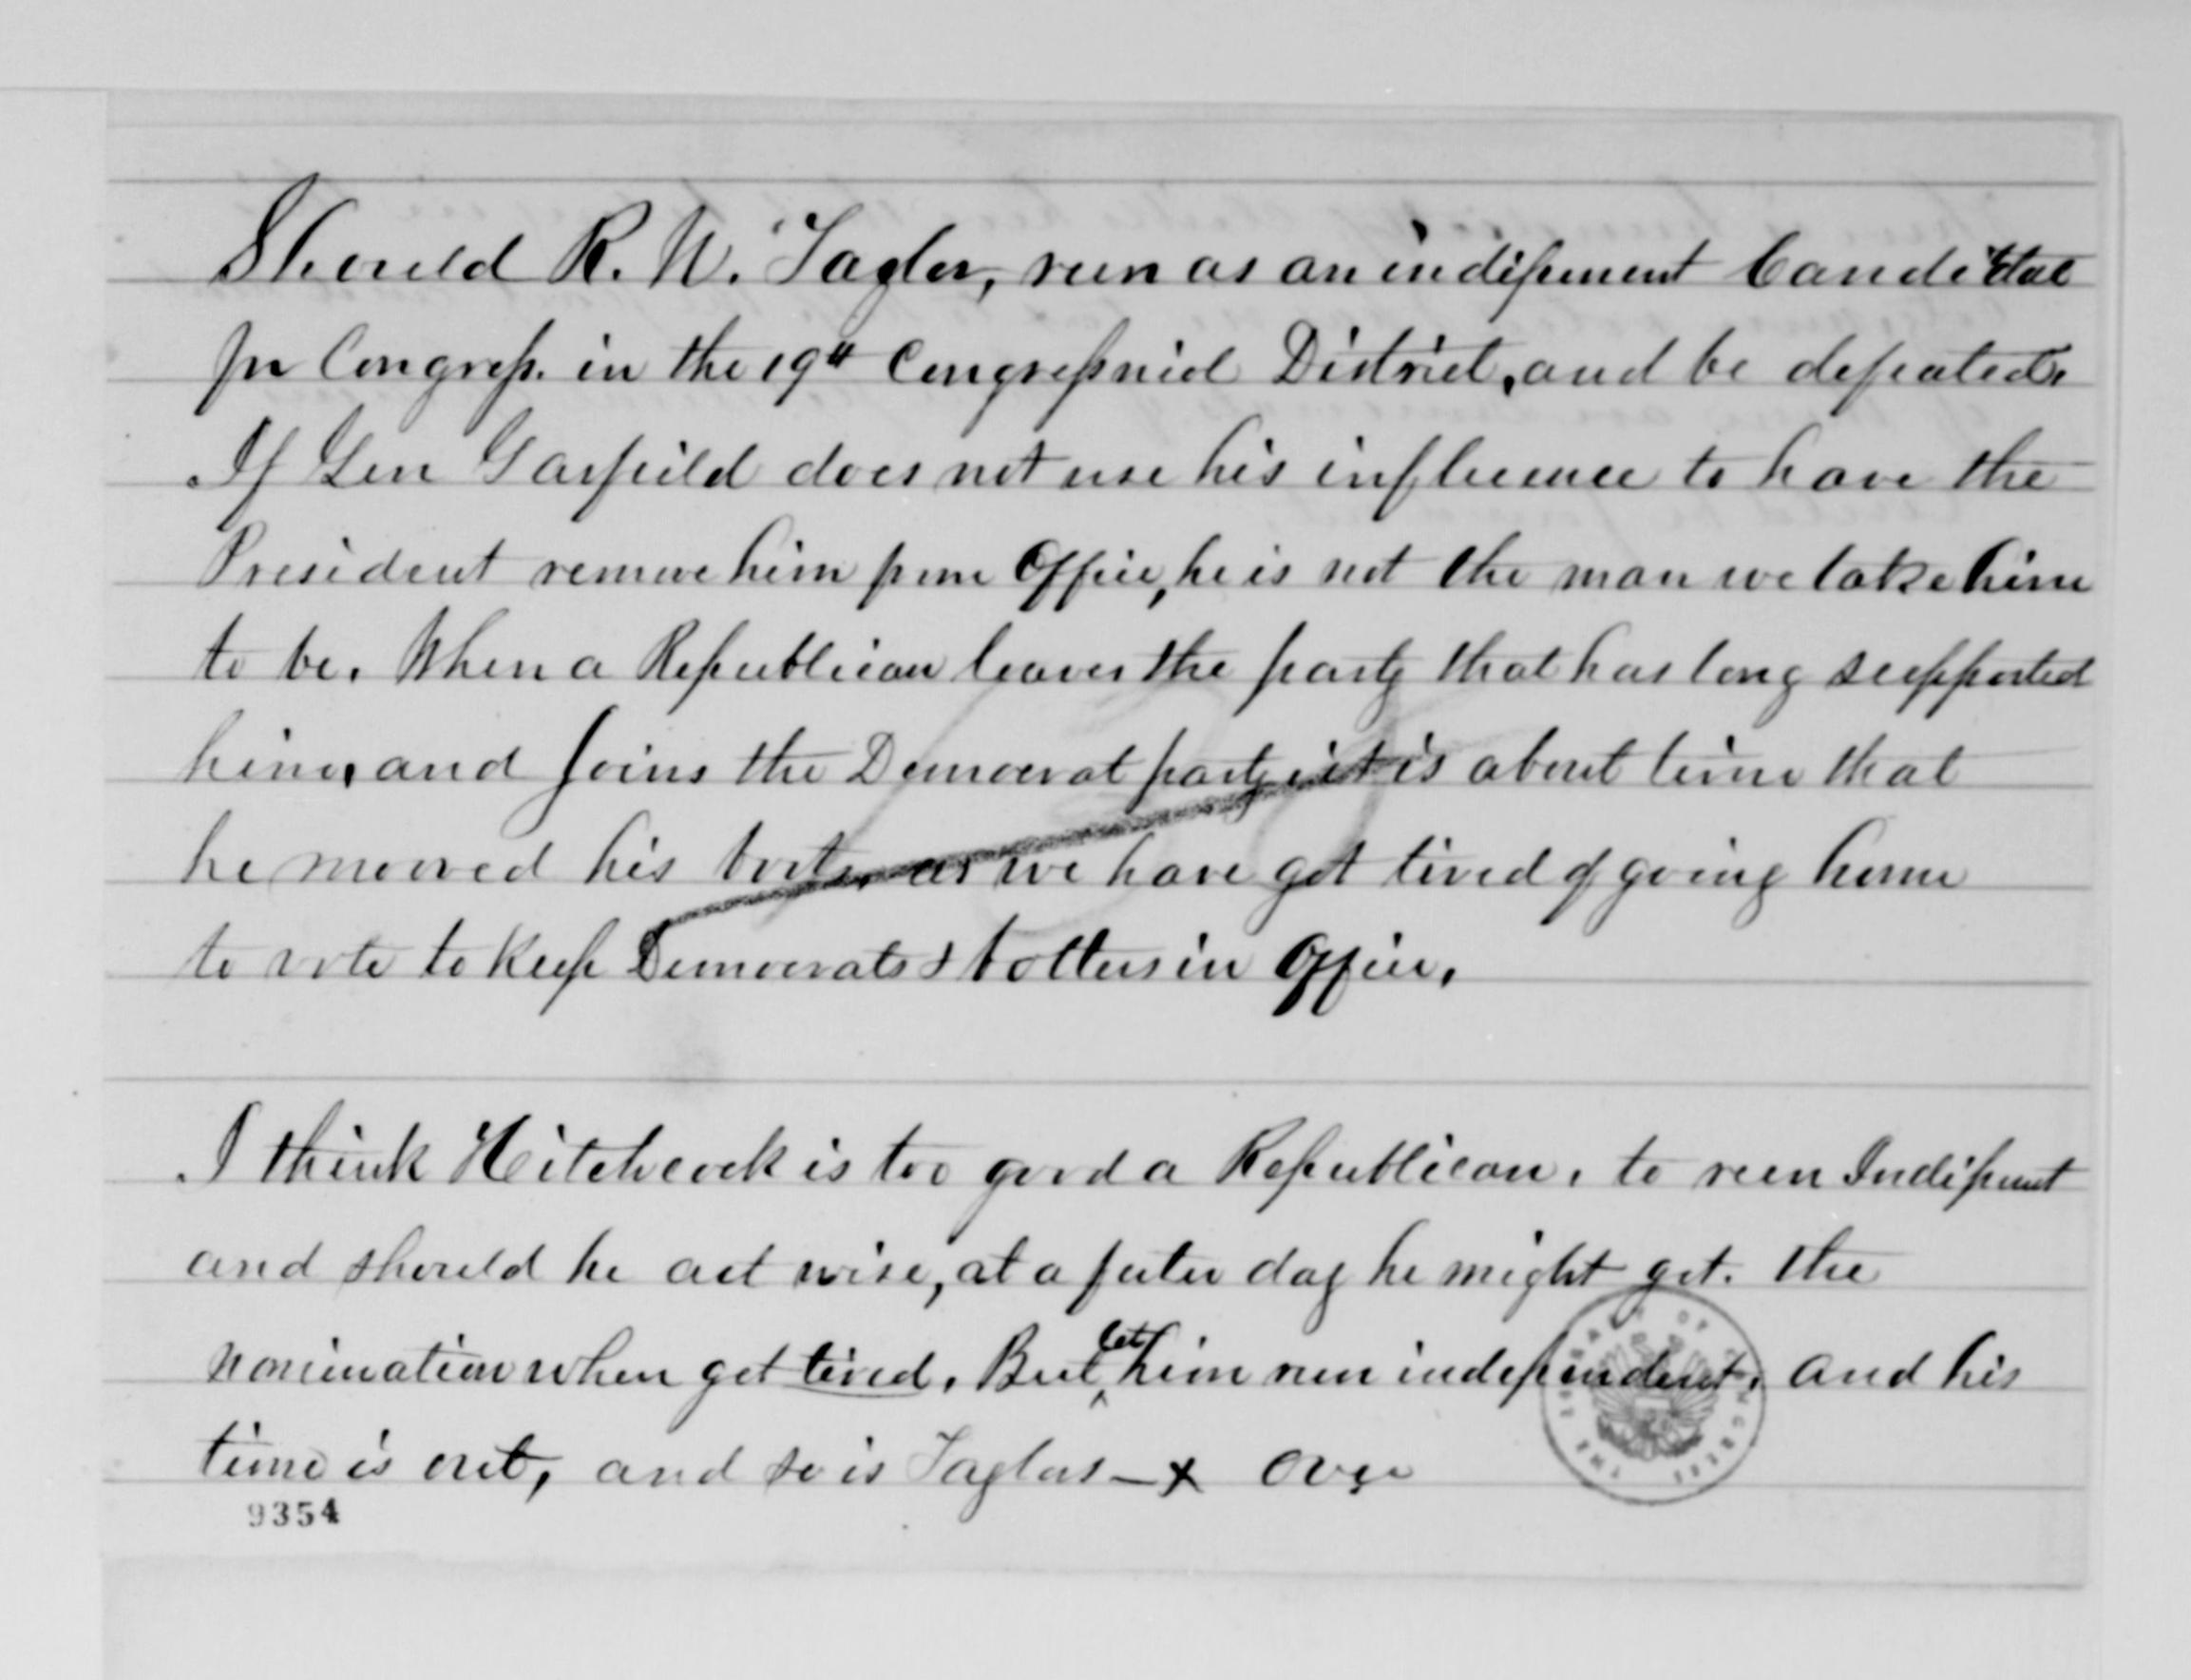 Should R. W. Taylor, run as an indipenent Canditdat
for Congress. in the 19th Congressniol District, and be defeated.
If Gen Garfield does not use his influence to have the
President remove him from Office, he is not the man we take him
to be. When a Republican leaves the party that has long supported
him, and Joins the Democrat party it is about time that
he mooved his boots, as we have got tired of going home
to vote to Keep Democrats & bolters in Office.
I think Hitchcock is too good a Republican, to run Indipent
and should he act wise, at a futer day he might get. the
nonimation when get tired. But let him run independent. and his
time is out, and so is Taylors - x Over
9354
THE LIBRARY OF CONGRESS